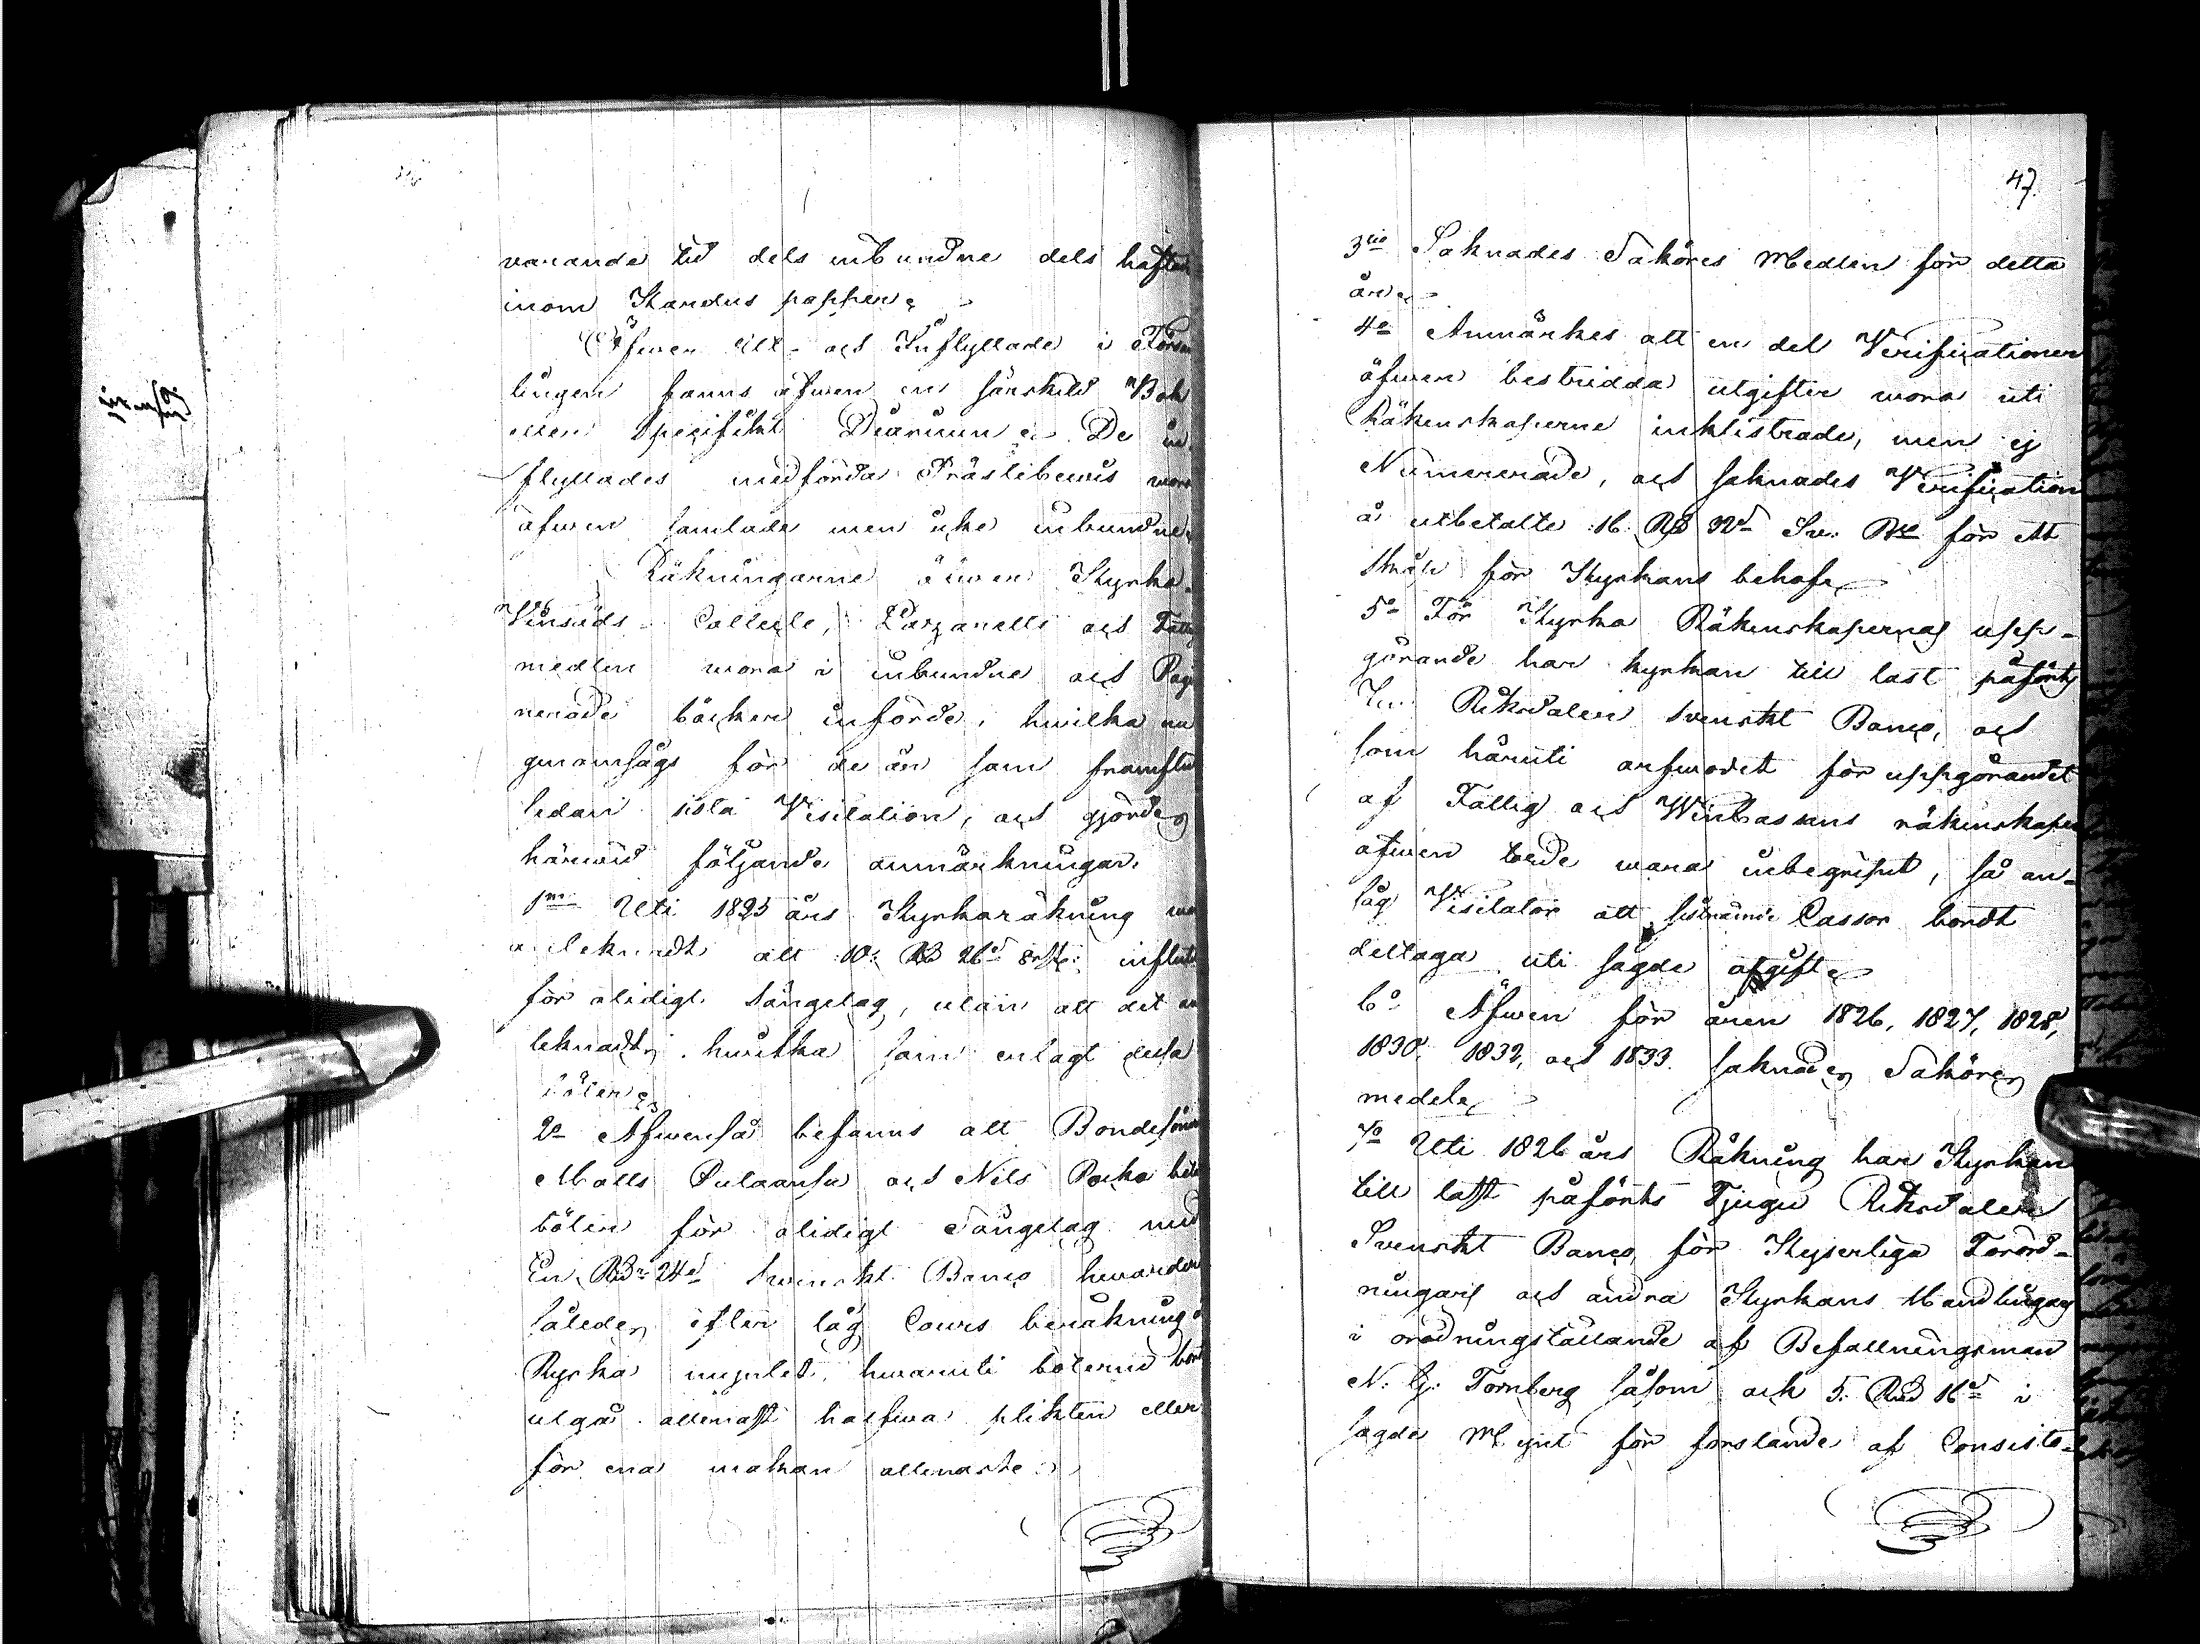 varande tid dels inbundne dels häftea
inom Kardus papper.
Öfwer Ut- och Inflyttade i Försam
lingen fanns äfwen en särskild Bok
eller specifikt Diarium. De in
flyttades medförda Prästebewis woro
äfwen samlade men icke inbundne.
Räkningarne öfwer Kyrko-
Winsäds- Collecte, och Fattig
medlen woro i inbundne och Pagi
nerade böcker införde, hwilka nu
genomsågs för de år som framflutit
sedan sista Visitation, och gjordes
härwid följande anmärkningar.
1mo Uti 1825 års Kyrkoräkning war
att 10: Rb 26 s influtit
för otidigt Sängelag, utan att det an
teknadt, hwilka som erlagt dessa
böter.
2o Äfwenså befanns att Bondesönerne
Matts och Nils böter
för otidigt Sängelag med
En Rb 24 s Swenskt Banco hwardera
således efter låg Cours beräkning i
Ryska myntet, hwaruti böterne bort
utgå allenast halfwa plikten eller
för ena makan allenaste.
47.
3tio Saknades Saköres Medlen för detta
år.
4o Anmärkes att en del Verificationer
öfwer bestridda utgifter woro uti
Räkenskaperne inklistrade, men ej
Numererade, och saknades Verification
å utbetalte 16 Rb 32 s Sv: Bco för ett
för Kyrkans behof.
5o För Kyrko Räkenskapernas upp-
görande har kyrkan till last påförts
Riksdaler svenskt Banco, och
som häruti arfwodet för uppgörandet
af Fattig och Wincassans räkenskaper
äfwen torde wara inbegripet, så an-
såg Visitator att sistnämde Cassor bordt
deltaga uti sagde afgift.
6o Äfwen för åren 1826, 1827, 1828,
1830, 1832, och 1833. saknades Saköres
medel.
7o Uti 1826 års Räkning har Kyrkan
till last påförts Tjugu Riksdaler
Svenskt Banco, för Kejserliga Förord-
ningars och andra Kyrkans Handlingars
i ordningställande af Befallningsman
N. G. Tornberg såsom ock 5. Rb 16 s i
sagde Mynt för forslande af Consisto-